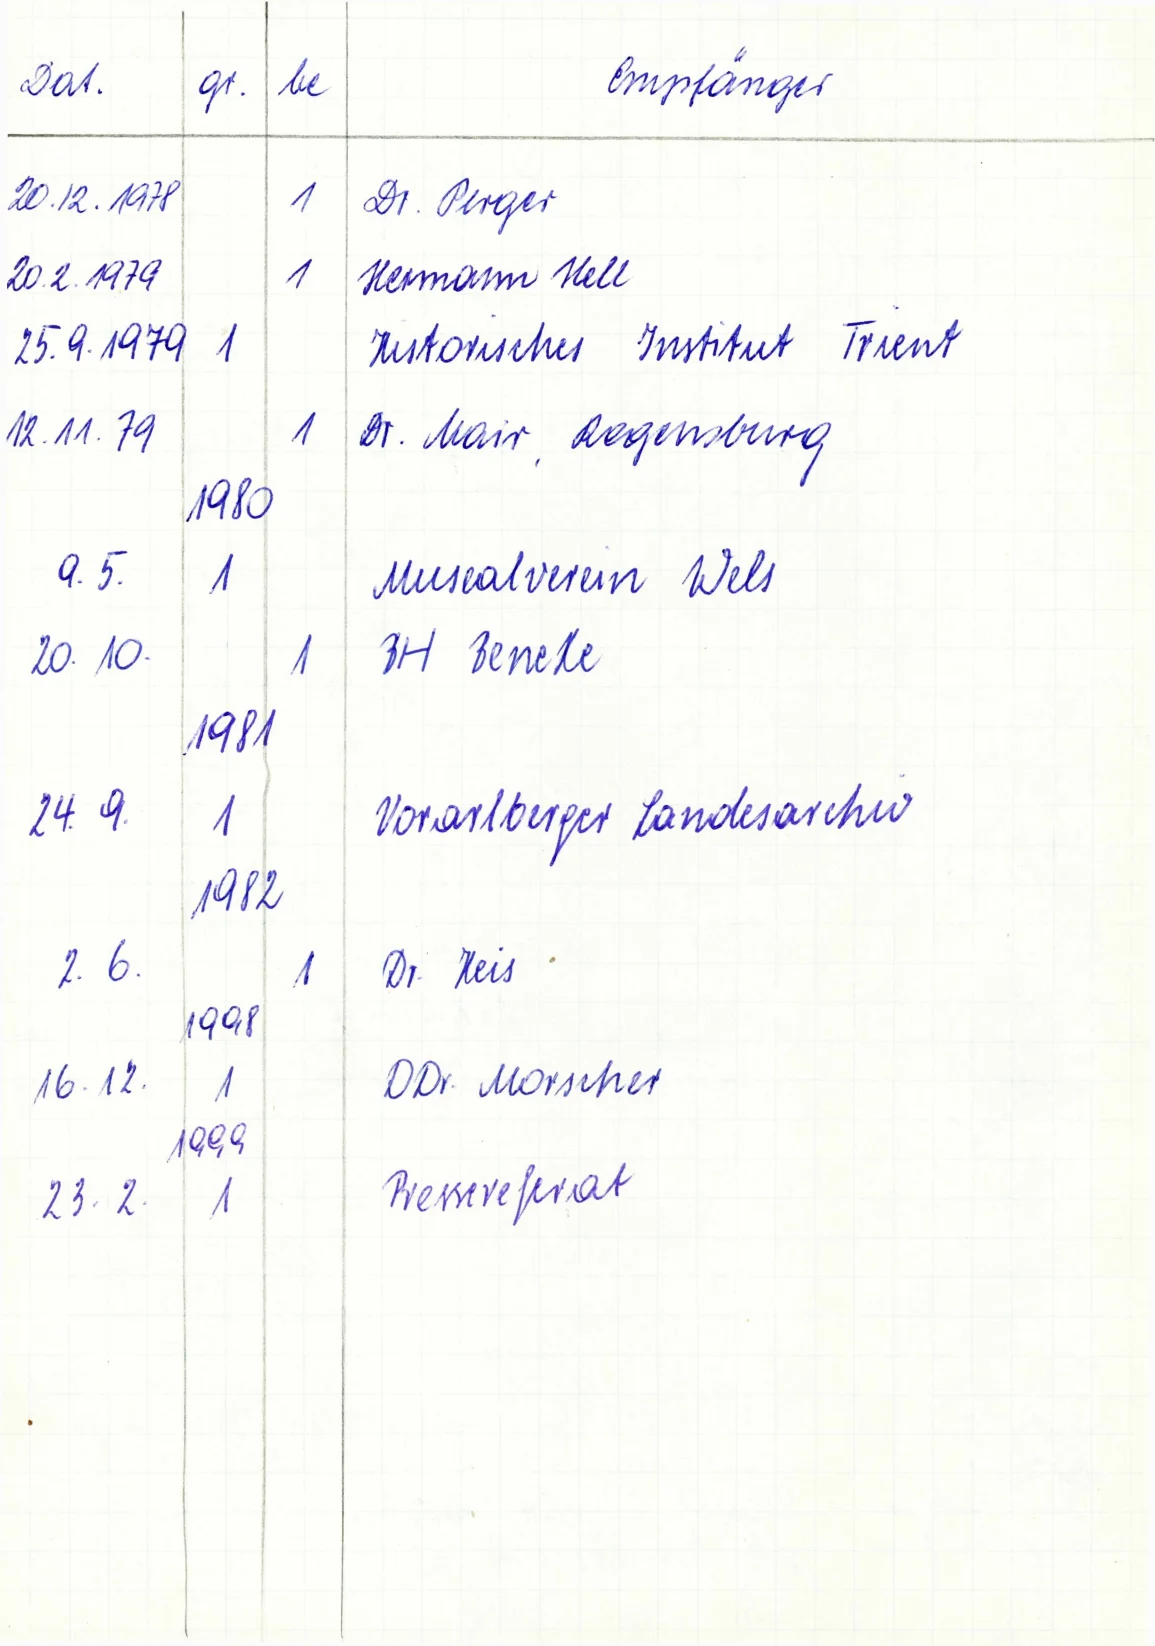 Dat. gr. be Empfänger
20.12.1978 1 Dr. Perger
20.2.1979 1 Hermann Hell
25.9.1979 1 Historisches Institut Trient
12.11.79 1 Dr. Mair, Regensburg
1980
9.5. 1 Musealverein Wels
20.10. 1 BH Beneke
1981
24.9. 1 Vorarlberger Landesarchiv
1982
2.6. 1 Dr. Heis
1998
16.12. 1 DDr. Morscher
1999
23.2. 1 Pressereferat